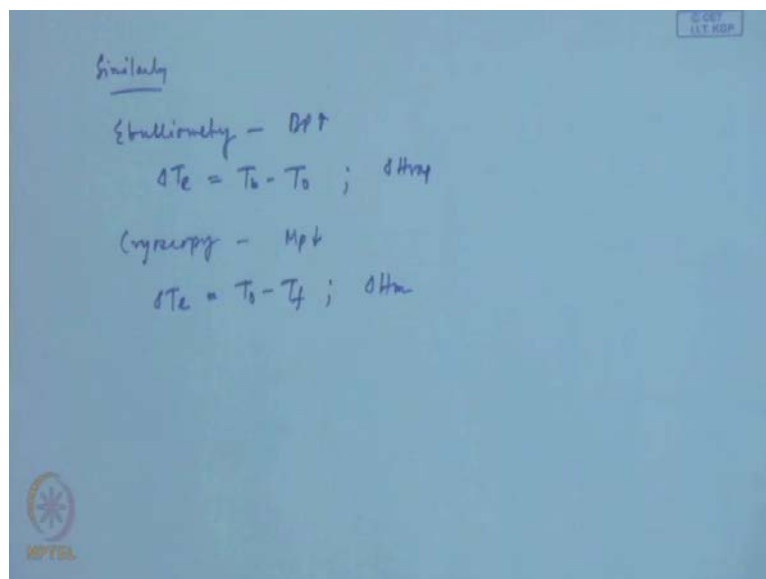 © CET
I.I.T. KGP
Similarly
Ebulliometry - BP↑
ΔTe = Tb - To ; ΔHvap
Cryoscopy - Mp↓
ΔTe = To - Tf ; ΔHm
NPTEL